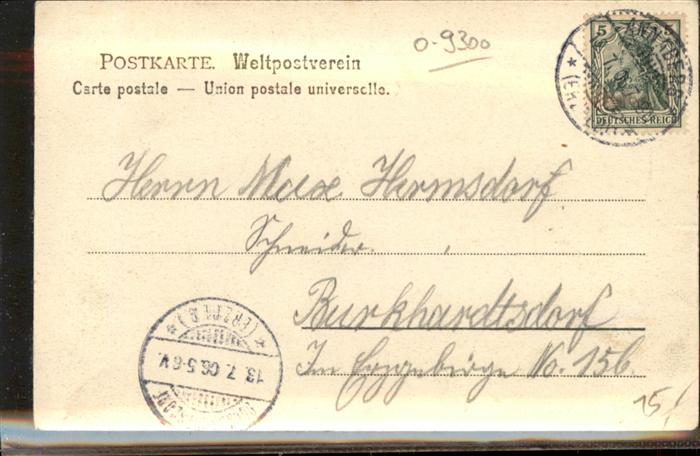 o-9300
POSTKARTE. Weltpostverein
Carte postale — Union postale universelle.
5
ANNABERG
(ERZ
DEUTSCHES REICH
Herrn Max Hermsdorf
Schneider.
Burkhardtsdorf
Im Erzgebirge No. 156.
(ERZGEB.)
13. 7. 06. 5-6 V.
15,